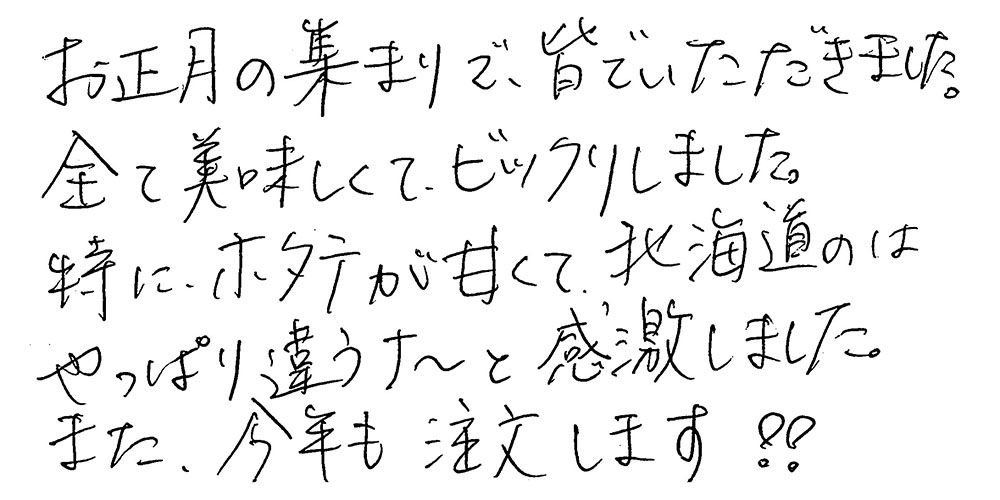 お正月の集まりで、皆でいただきました。
全て美味しくて、ビックリしました。
特に、ホタテが甘くて、北海道のは
やっぱり違うナ〜と感激しました。
また、今年も注文します!!